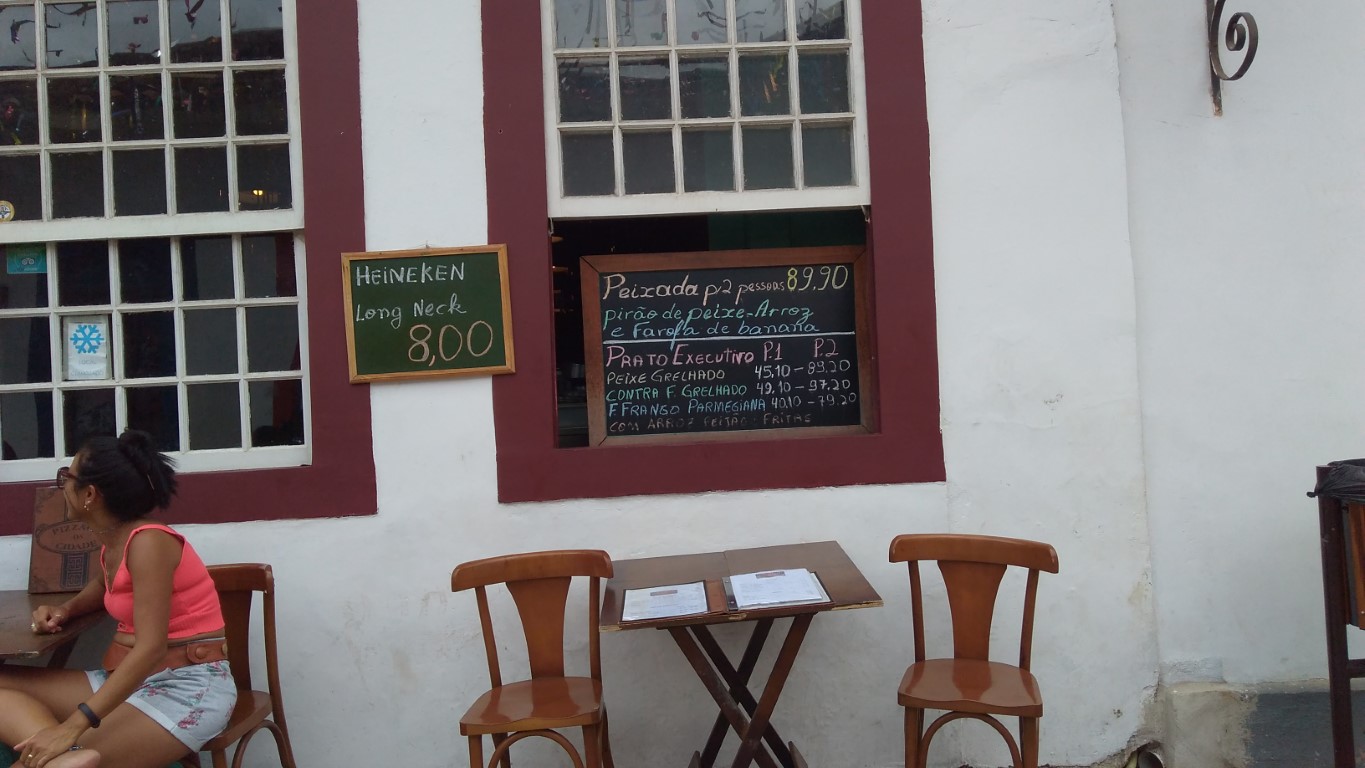 HEINEKEN
Long Neck
8,00
Peixada p2 pessoas 89,90
pirão de peixe-Arroz
e Farofa de banana
PRATO EXECUTIVO P.1 P.2
PEIXE GRELHADO 45,10 - 89.20
CONTRA F. GRELHADO 49,10 - 97.20
F. FRANGO PARMEGIANA 40,10 - 79.20
COM ARROZ FEIJÃO - FRITAS
CIDADE